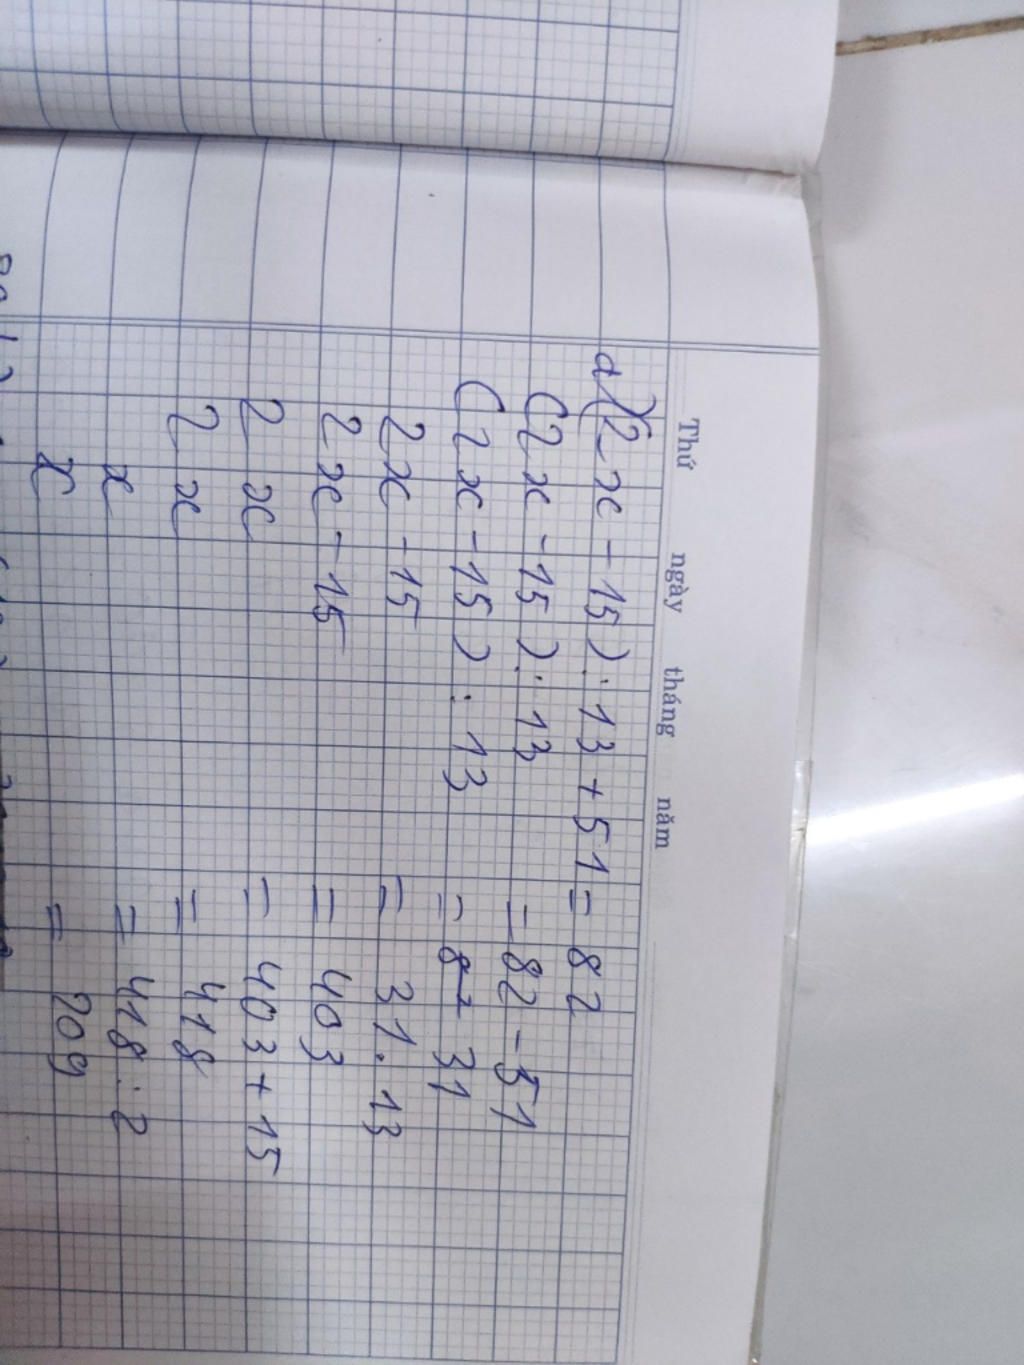 Thứ ngày tháng năm
a) (2x - 15) : 13 + 51 = 82
(2x - 15) : 13 = 82 - 51
(2x - 15) : 13 = 31
2x - 15 = 31 . 13
2x - 15 = 403
2x = 403 + 15
2x = 418
x = 418 : 2
x = 209